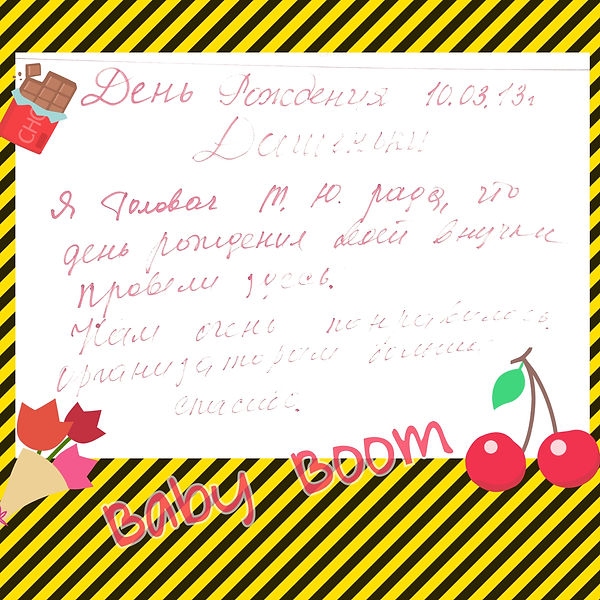 День Рождения 10.03.13г
Дашеньки
Я Головач М. Ю. рада, что
день рождения моей внучки
провели здесь.
Нам очень понравилось.
Организаторам большое
спасибо.
CHO
Baby Boom